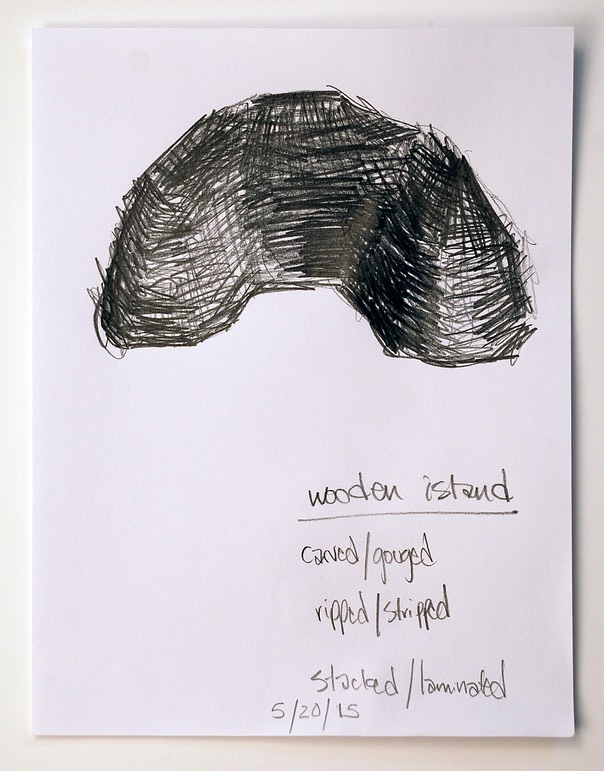 wooden island
carved/gouged
ripped/stripped
stacked/laminated
5/20/15